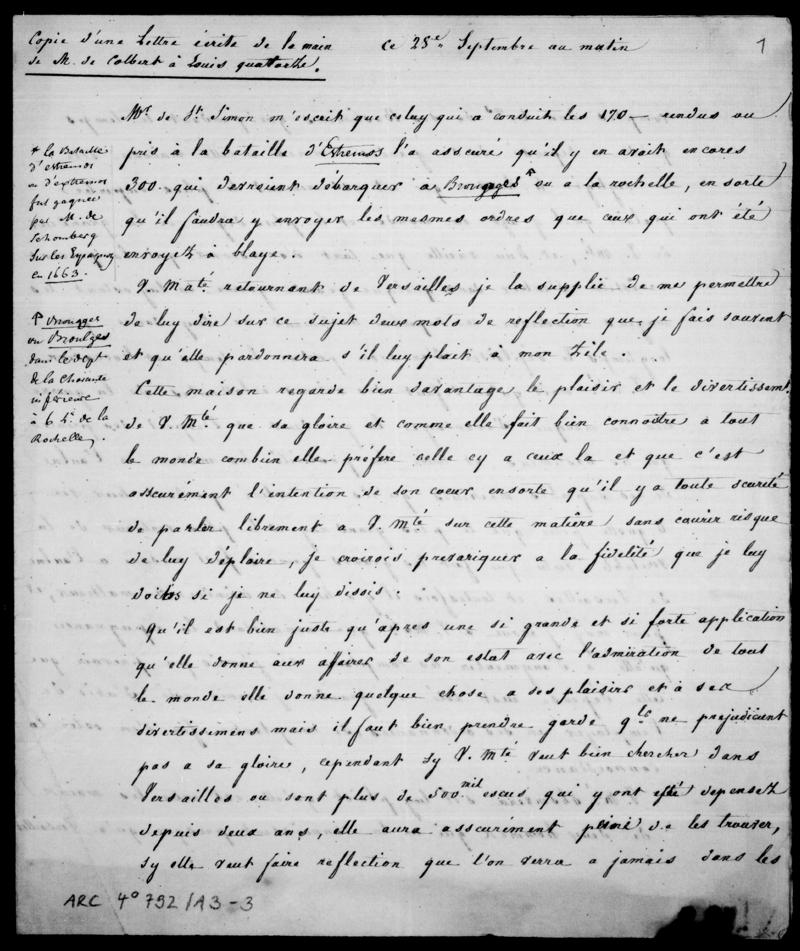 Copie d'une Lettre écrite de la main
de M. de Colbert à Louis quatorze.
ce 28e Septembre au matin
1
Mr de St Simon m'escrit que celuy qui a conduit les 170 — rendus ou
pris à la bataille d'Extremos l'a asscuré qu'il y en avait encores
300 qui devraient débarquer à Brouages ou a la rochelle, en sorte
qu'il faudra y envoyer les mesmes ordres que ceux qui ont été
envoyez à blaye.
V. Maté retournant de Versailles je la supplie de me permettre
de luy dire sur ce sujet deux mots de reflection que je fais souvent
et qu'elle pardonnera s'il luy plait à mon zèle.
Cette maison regarde bien davantage le plaisir et le divertissemt
de V. Mté que sa gloire et comme elle fait bien connoitre a tout
le monde combien elle préfere celle cy a ceux la et que c'est
asscurément l'intention de son coeur ensorte qu'il y a toute scurité
de parler librement a V. Mté sur cette matière sans courir risque
de luy déplaire, je croirois prevariquer a la fidelité que je luy
dois si je ne luy dissis.
Qu'il est bien juste qu'apres une si grande et si forte application
qu'elle donne aux affaires de son estat avec l'admiration de tout
le monde elle donne quelque chose a ses plaisirs et à ses
divertissemens mais il faut bien prendre garde qls ne prejudicient
pas a sa gloire, cependant sy V. Mté veut bien chercher dans
Versailles ou sont plus de 500 mil escus qui y ont esté depensez
depuis deux ans, elle aura asscurément peine de les trouver,
sy elle veut faire reflection que l'on verra a jamais dans les
* la Bataille
d'extremos
ou d'extremos
fut gagnée
par M. de
Schomberg
sur les Espagnols
en 1663.
ou Broulges
dans le dept
de la Charante
inférieure
à 6 L. de la
Rochelle.
ARC 4° 792/A3-3